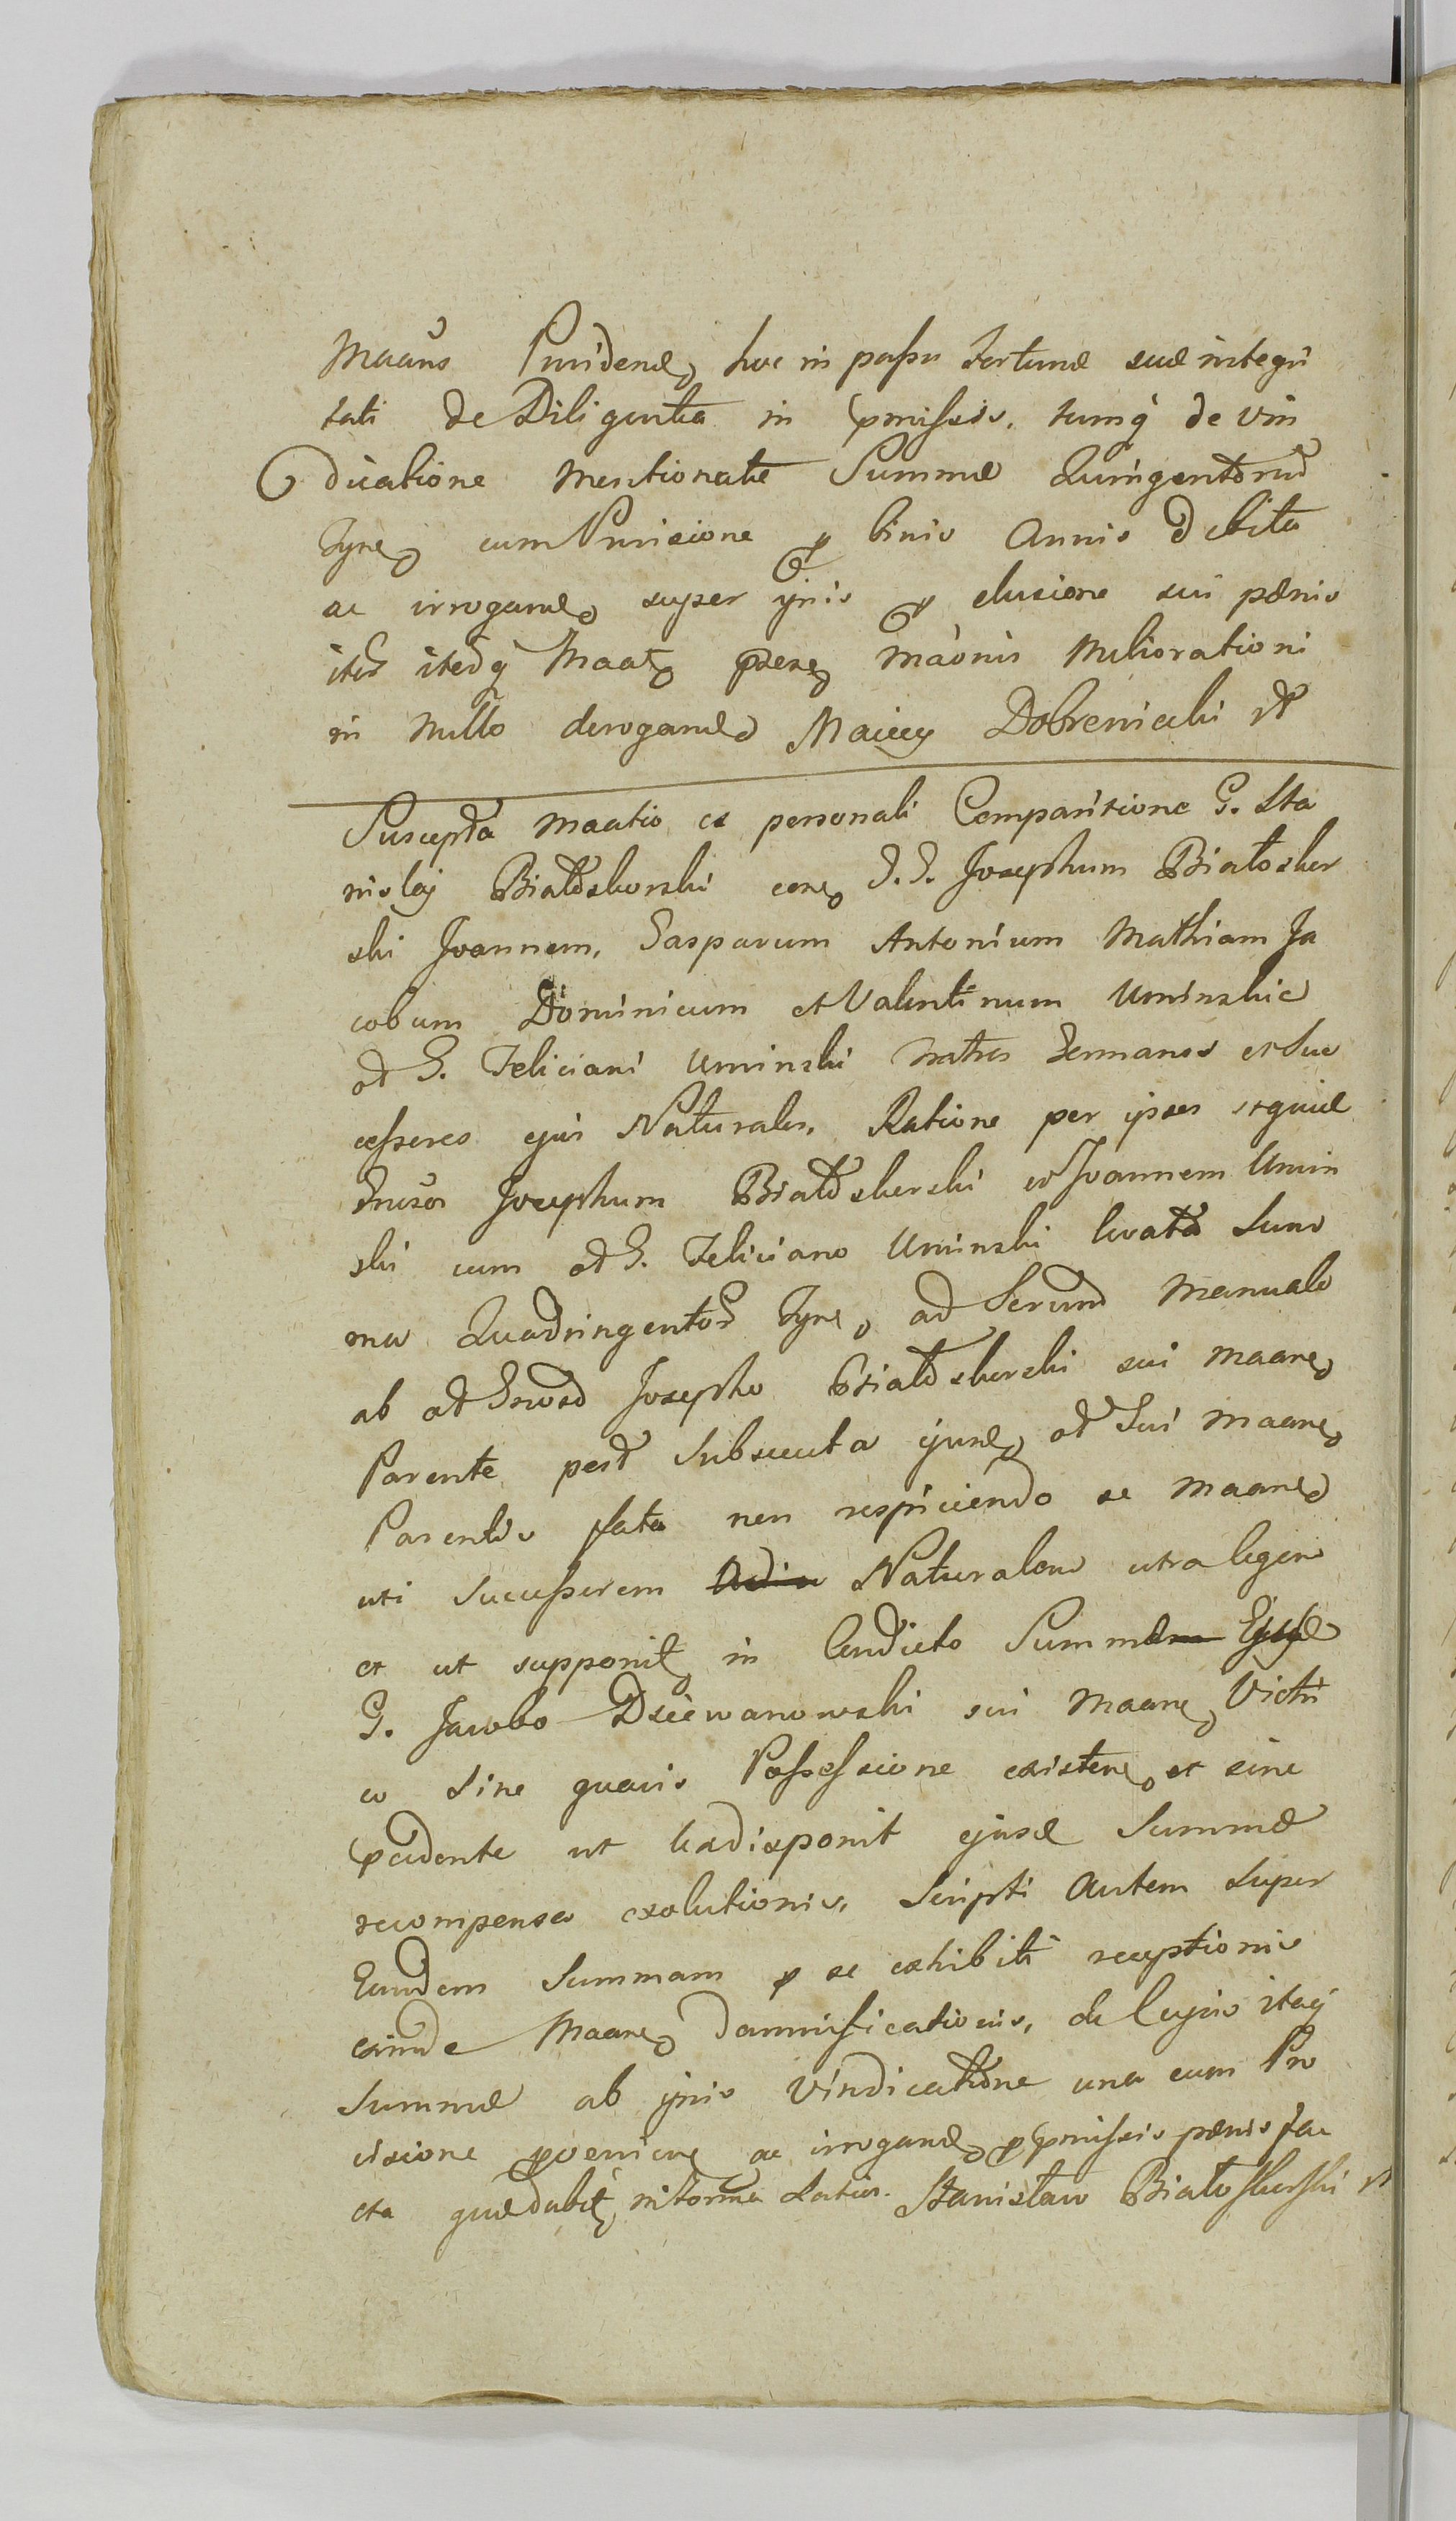 Maans Providend, hoc in passu fortunæ suæ integri
tati de Diligentia in pmissis, tumq de vin
dicatione mentionatæ Summæ Quingentorum
Tynf cum Provisione p binis Annis debita
ac irrogand super ipsis p elusione sui pænis
item itemq Maat præsen maonis Meliorationi
in nullo derogand Maciey Dobrenicki
Suscepta maatio ex personali Comparitione G. Sta
nislai Białoskorski con G. G. Josephum Białoskor
ski Joannem, Gasparum Antonium Mathiam Ja
cobum Dominicum et Valentinum Uminskie
od G. Feliciani Uminski Fratres Germanos et Suc
cessores ejus Naturales, Ratione per ipsos siquid
Gnosos Josephum Białoskorski et Joannem Umin
ski cum od G. Feliciano Uminski levata Sum
ma Quadringentor Tynf, ad Scriptum Manuale
ab od Gnoso Josepho Białoskorski sui maan
Parente post Subsecuta ejusd od Sui maan
Parentis fata non respiciendo se maand
uti Successorem Naturalem citra legem
et ut supponit in Condicto Summæ Ejusd
G. Jacobo Dziewanowski sui maan Victri
co Sine quavis Possessione existen et sine
pcedente ut Lex disponit ejusd Summæ
recompensa exolutionis, Scripti autem super
Eandem Summam p se exhibiti receptionis
exinde Maan damnificationis, de cujus itaq
Summæ ab ipsis Vindicatione una cum Pro
visione pvenien ac irrogand p pmissis pænis fa
cta quædubit, in forma Latior. Stanisław Białoskorski